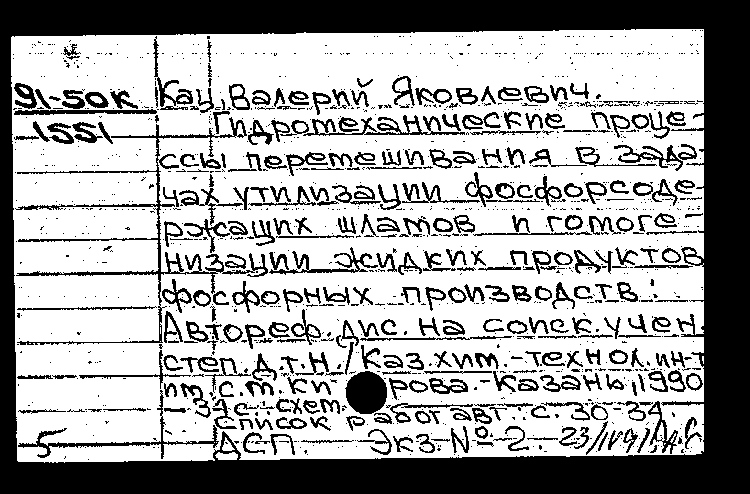 91-50к Кац, Валерий Яковлевич.
1551 Гидромеханические проце-
ссы перемешивания в зада-
чах утилизации фосфорсоде-
ржащих шламов и гомоге-
низации жидких продуктов
фосфорных производств:
Автореф. дис. на соиск. учен.
степ. д.т.н. / Каз. хим.-технол. ин-т
им. с.м. Ки-рова.-Казань, 1990
- 34с.: схем.
Список работ авт.: с. 30-34.
5 ДСП. Экз. № 2. 23/IV91